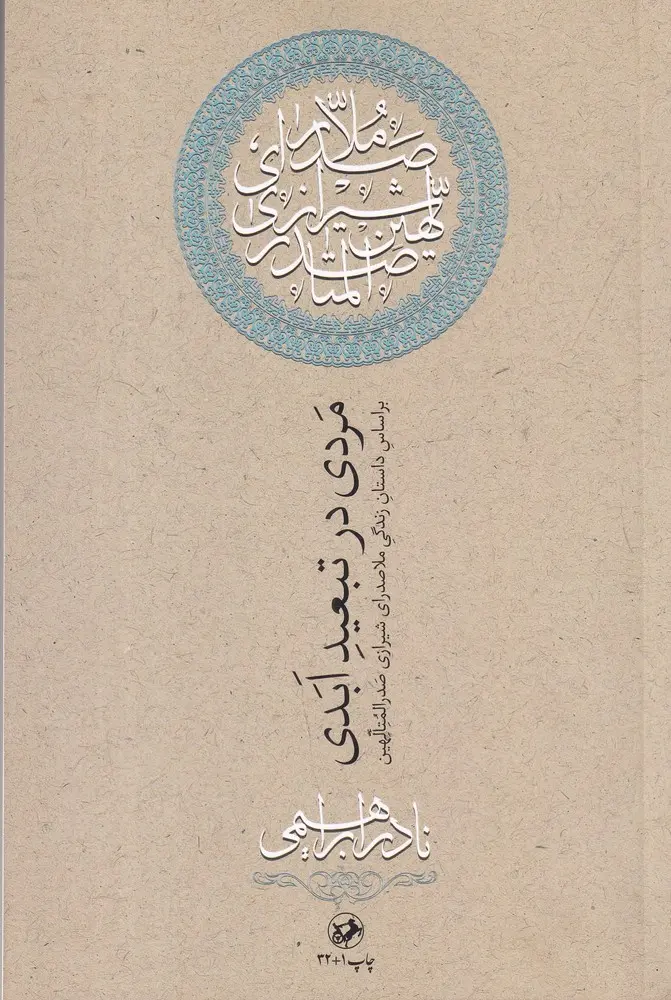 ملّا صدرای
شیرازی
صدر المتألّهین
مَردی در تبعیدِ اَبَدی
براساسِ داستانِ زندگیِ ملاصدرای شیرازی صَدرالمُتِألّهین
نادر ابراهیمی
چاپ ۱+۳۲